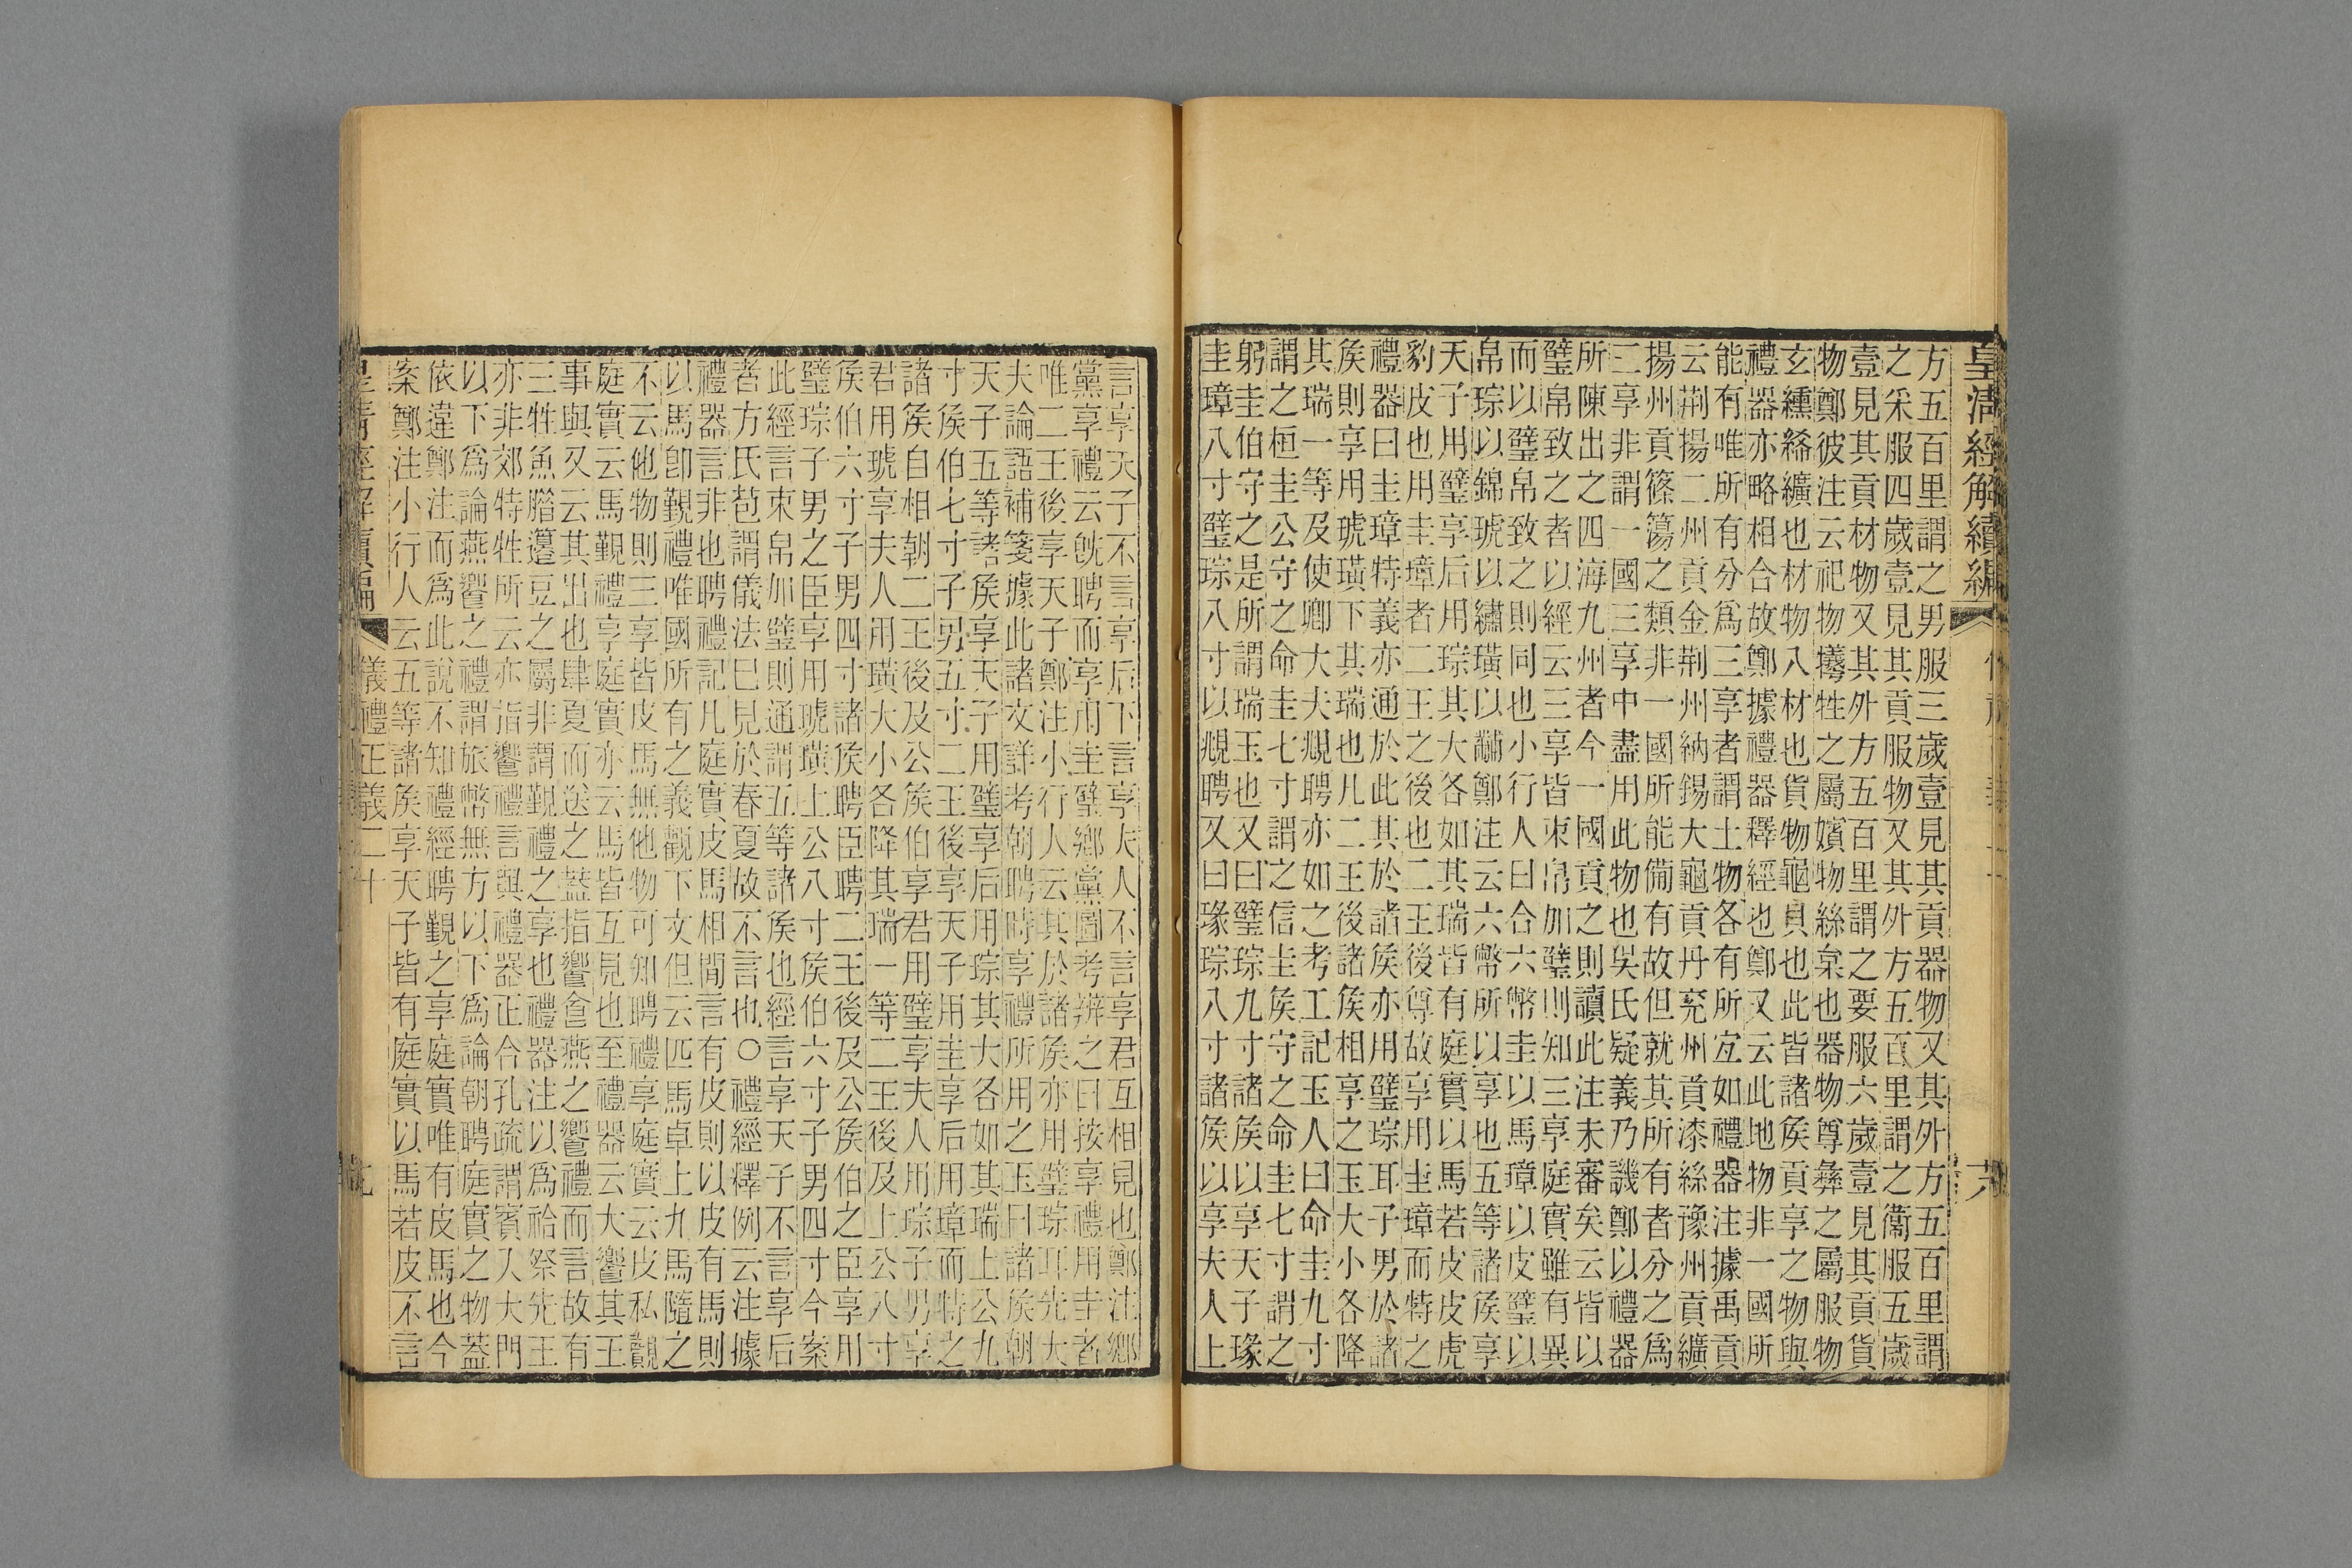 皇清經解續編
方五百里謂之男服三歲壹見其貢器物又其外方五百里謂
之采服四歲壹見其貢服物又其外方五百里謂之衞服五歲
壹見其貢材物又其外方五百里謂之要服六歲壹見其貢貨
物鄭彼注云祀物犧牲之屬嬪物絲枲也器物尊彝之屬服物
玄纁絺纊也材物八材也貨物龜貝也此皆諸矦貢享之物與
禮器亦略相合故鄭據禮器釋經也鄭又云此地物非一國所
能有唯所有分爲三享者謂土物各有所宐如禮器注據禹貢
云荆揚二州貢金荆州納錫大龜貢丹兖州貢漆絲豫州貢纊
揚州貢篠簜之類非一國所能備有故但就其所有者分之爲
三享非謂一國三享中盡用此物也吳氏疑義乃譏鄭以禮器
所陳出之四海九州者今一國貢之則讀此注未審矣云皆以
璧帛致之者以經云三享皆束帛加璧則知三享庭實雖有異
而以璧帛致之則同也小行人曰合六幣圭以馬璋以皮璧以
帛琮以錦琥以繡璜以黼鄭注云六幣所以享也五等諸矦享
天子用璧享后用琮其大各如其瑞皆有庭實以馬若皮皮虎
豹皮也用圭璋者二王之後也二王後尊故享用圭璋而特之
禮器曰圭璋特義亦通於此其於諸矦亦用璧琮耳子男於諸
矦則享用琥璜下其瑞也凡二王後諸矦相享之玉大小各降
其瑞一等及使卿大夫覜聘亦如之考工記玉人曰命圭九寸
謂之桓圭公守之命圭七寸謂之信圭矦守之命圭七寸謂之
躬圭伯守之是所謂瑞玉也又曰璧琮九寸諸矦以享天子瑑
圭璋八寸璧琮八寸以覜聘又曰瑑琮八寸諸矦以享夫人上
言享天子不言享后下言享夫人不言享君互相見也鄭注鄉
黨享禮云旣聘而享用圭璧鄉黨圖考辨之曰按享禮用圭者
唯二王後享天子鄭注小行人云其於諸矦亦用璧琮耳先大
夫論語補箋據此諸文詳考朝聘時享禮所用之玉曰諸矦朝
天子五等諸矦享天子用璧享后用琮其大各如其瑞上公九
寸矦伯七寸子男五寸二王後享天子用圭享后用璋而特之
諸矦自相朝二王後及公矦伯享君用璧享夫人用琮子男享
君用琥享夫人用璜大小各降其瑞一等二王後及上公八寸
矦伯六寸子男四寸諸矦聘臣聘二王後及公矦伯之臣享用
璧琮子男之臣享用琥璜上公八寸矦伯六寸子男四寸今案
此經言束帛加璧則通謂五等諸矦也經言享天子不言享后
者方氏苞謂儀法已見於春夏故不言也○禮經釋例云注據
禮器言非也聘禮記凡庭實皮馬相閒言有皮則以皮有馬則
以馬卽覲禮唯國所有之義觀下文但云匹馬卓上九馬隨之
不云他物則三享皆皮馬無他物可知聘禮享庭實云皮私覿
庭實云馬覲禮享庭實亦云馬皆互見也至禮器云大饗其王
事與又云其出也肆夏而送之蓋指饗食燕之饗禮而言故有
三牲魚腊籩豆之屬非謂覲禮之享也禮器注以爲祫祭先王
亦非郊特牲所云亦指饗禮言與禮器正合孔疏謂賓入大門
以下爲論燕饗之禮謂旅幣無方以下爲論朝聘庭實之物蓋
依違鄭注而爲此說不知禮經聘覲之享庭實唯有皮馬也今
案鄭注小行人云五等諸矦享天子皆有庭實以馬若皮不言
皇清經解續編 儀禮正義二十